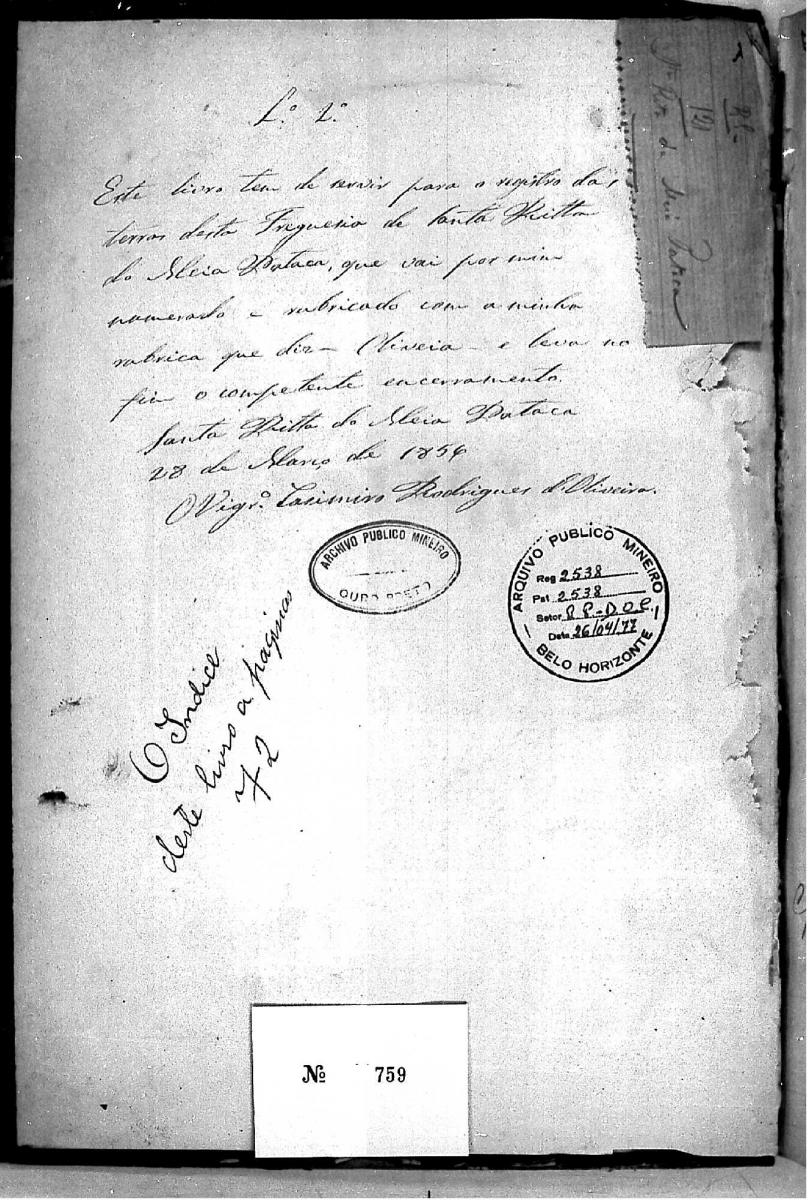 L.º 1.º
Este livro tem de servir para o registro das
terras desta Freguesia de Santa Ritta
do Meia Pataca, que vai por mim
numerado e rubricado com a minha
rubrica que diz - Oliveia - e leva no
fim o competente encerramento.
Santa Ritta do Meia Pataca
28 de Março de 1856
O Vigr.º Casimiro Rodrigues d'Oliveira.
ARCHIVO PUBLICO MINEIRO
OURO PRETO
ARQUIVO PUBLICO MINEIRO
Reg 2538
Pat 2538
Setor R P - D O P.
Data 26/04/77
BELO HORIZONTE
O Indice
deste livro a paginas
72
191
Sta Rita da Meia Pataca
Nº 759